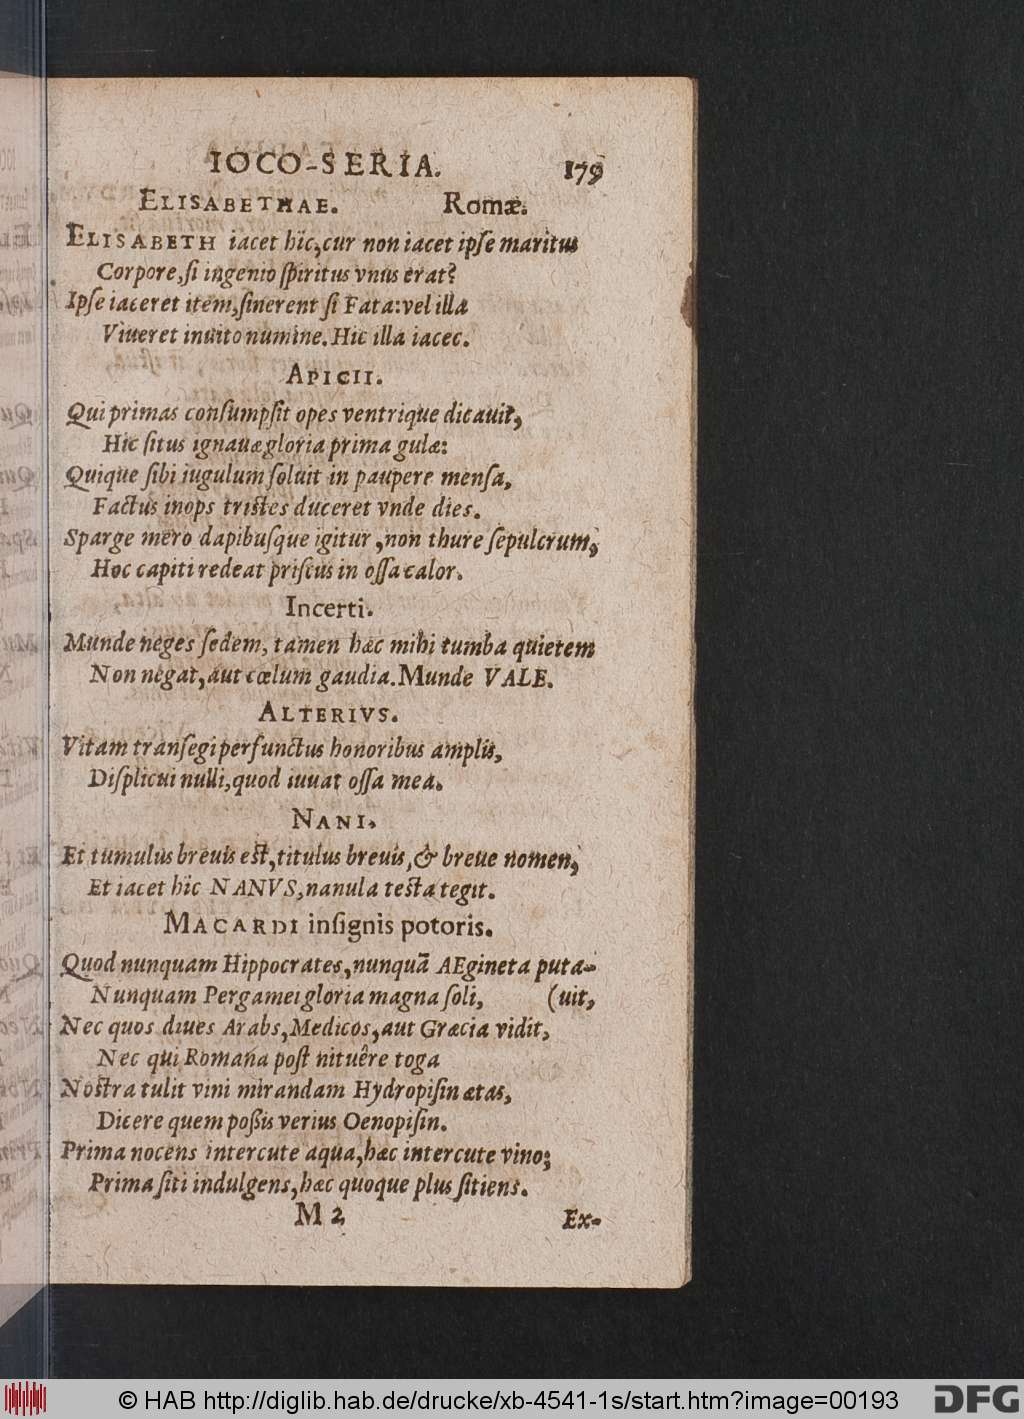 IOCO-SERIA. 179
ELISABETHAE. Romæ.
ELISABETH iacet hîc, cur non iacet ipſe maritus
Corpore, ſi ingenio ſpiritus vnus erat?
Ipſe iaceret item, ſinerent ſi Fata: vel illa
Viueret inuito numine. Hic illa iacec.
APICII.
Qui primas conſumpſit opes ventrique dicauit,
Hic ſitus ignauæ gloria prima gulæ:
Quique ſibi iugulum ſoluit in paupere menſa,
Factus inops tristes duceret vnde dies.
Sparge mero dapibuſque igitur, non thure ſepulcrum,
Hoc capiti redeat priſcus in oſſa calor.
Incerti.
Munde neges ſedem, tamen hæc mihi tumba quietem
Non negat, aut cœlum gaudia. Munde VALE.
ALTERIVS.
Vitam tranſegi perfunctus honoribus amplis,
Diſplicui nulli, quod iuuat oſſa mea.
NANI.
Et tumulus breuis est, titulus breuis, & breue nomen,
Et iacet hîc NANVS, nanula testa tegit.
MACARDI inſignis potoris.
Quod nunquam Hippocrates, nunquã AEgineta puta-
Nunquam Pergamei gloria magna ſoli, (uit,
Nec quos diues Arabs, Medicos, aut Græcia vidit,
Nec qui Romana poſt nituêre toga
Nostra tulit vini mirandam Hydropiſin ætas,
Dicere quem poßis verius Oenopiſin.
Prima nocens intercute aqua, hæc intercute vino;
Prima ſiti indulgens, hæc quoque plus ſitiens.
M 2 Ex-
© HAB http://diglib.hab.de/drucke/xb-4541-1s/start.htm?image=00193
DFG